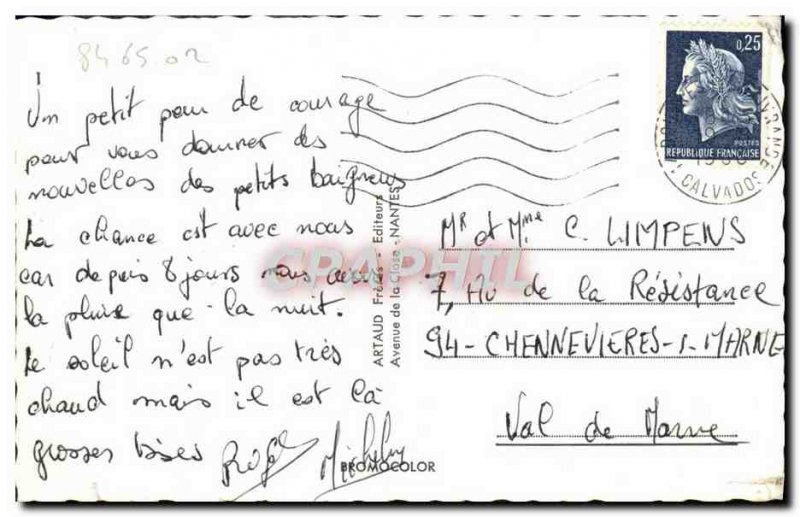 8465 02
Un petit peu de courage
pour vous donner des
nouvelles des petits baigneurs
La chance est avec nous
car depuis 8 jours nous avons
la pluie que la nuit.
Le soleil n'est pas très
chaud mais il est là
grosses bises
BROMOCOLOR
ARTAUD Frères - Editeurs
Avenue de la Close - NANTES
CPAPHIL
0,25
POSTES
REPUBLIQUE FRANÇAISE
CALVADOS
Mr et Mme C. LIMPENS
7, Av de la Résistance
94 - CHENNEVIERES-s-MARNE
Val de Marne